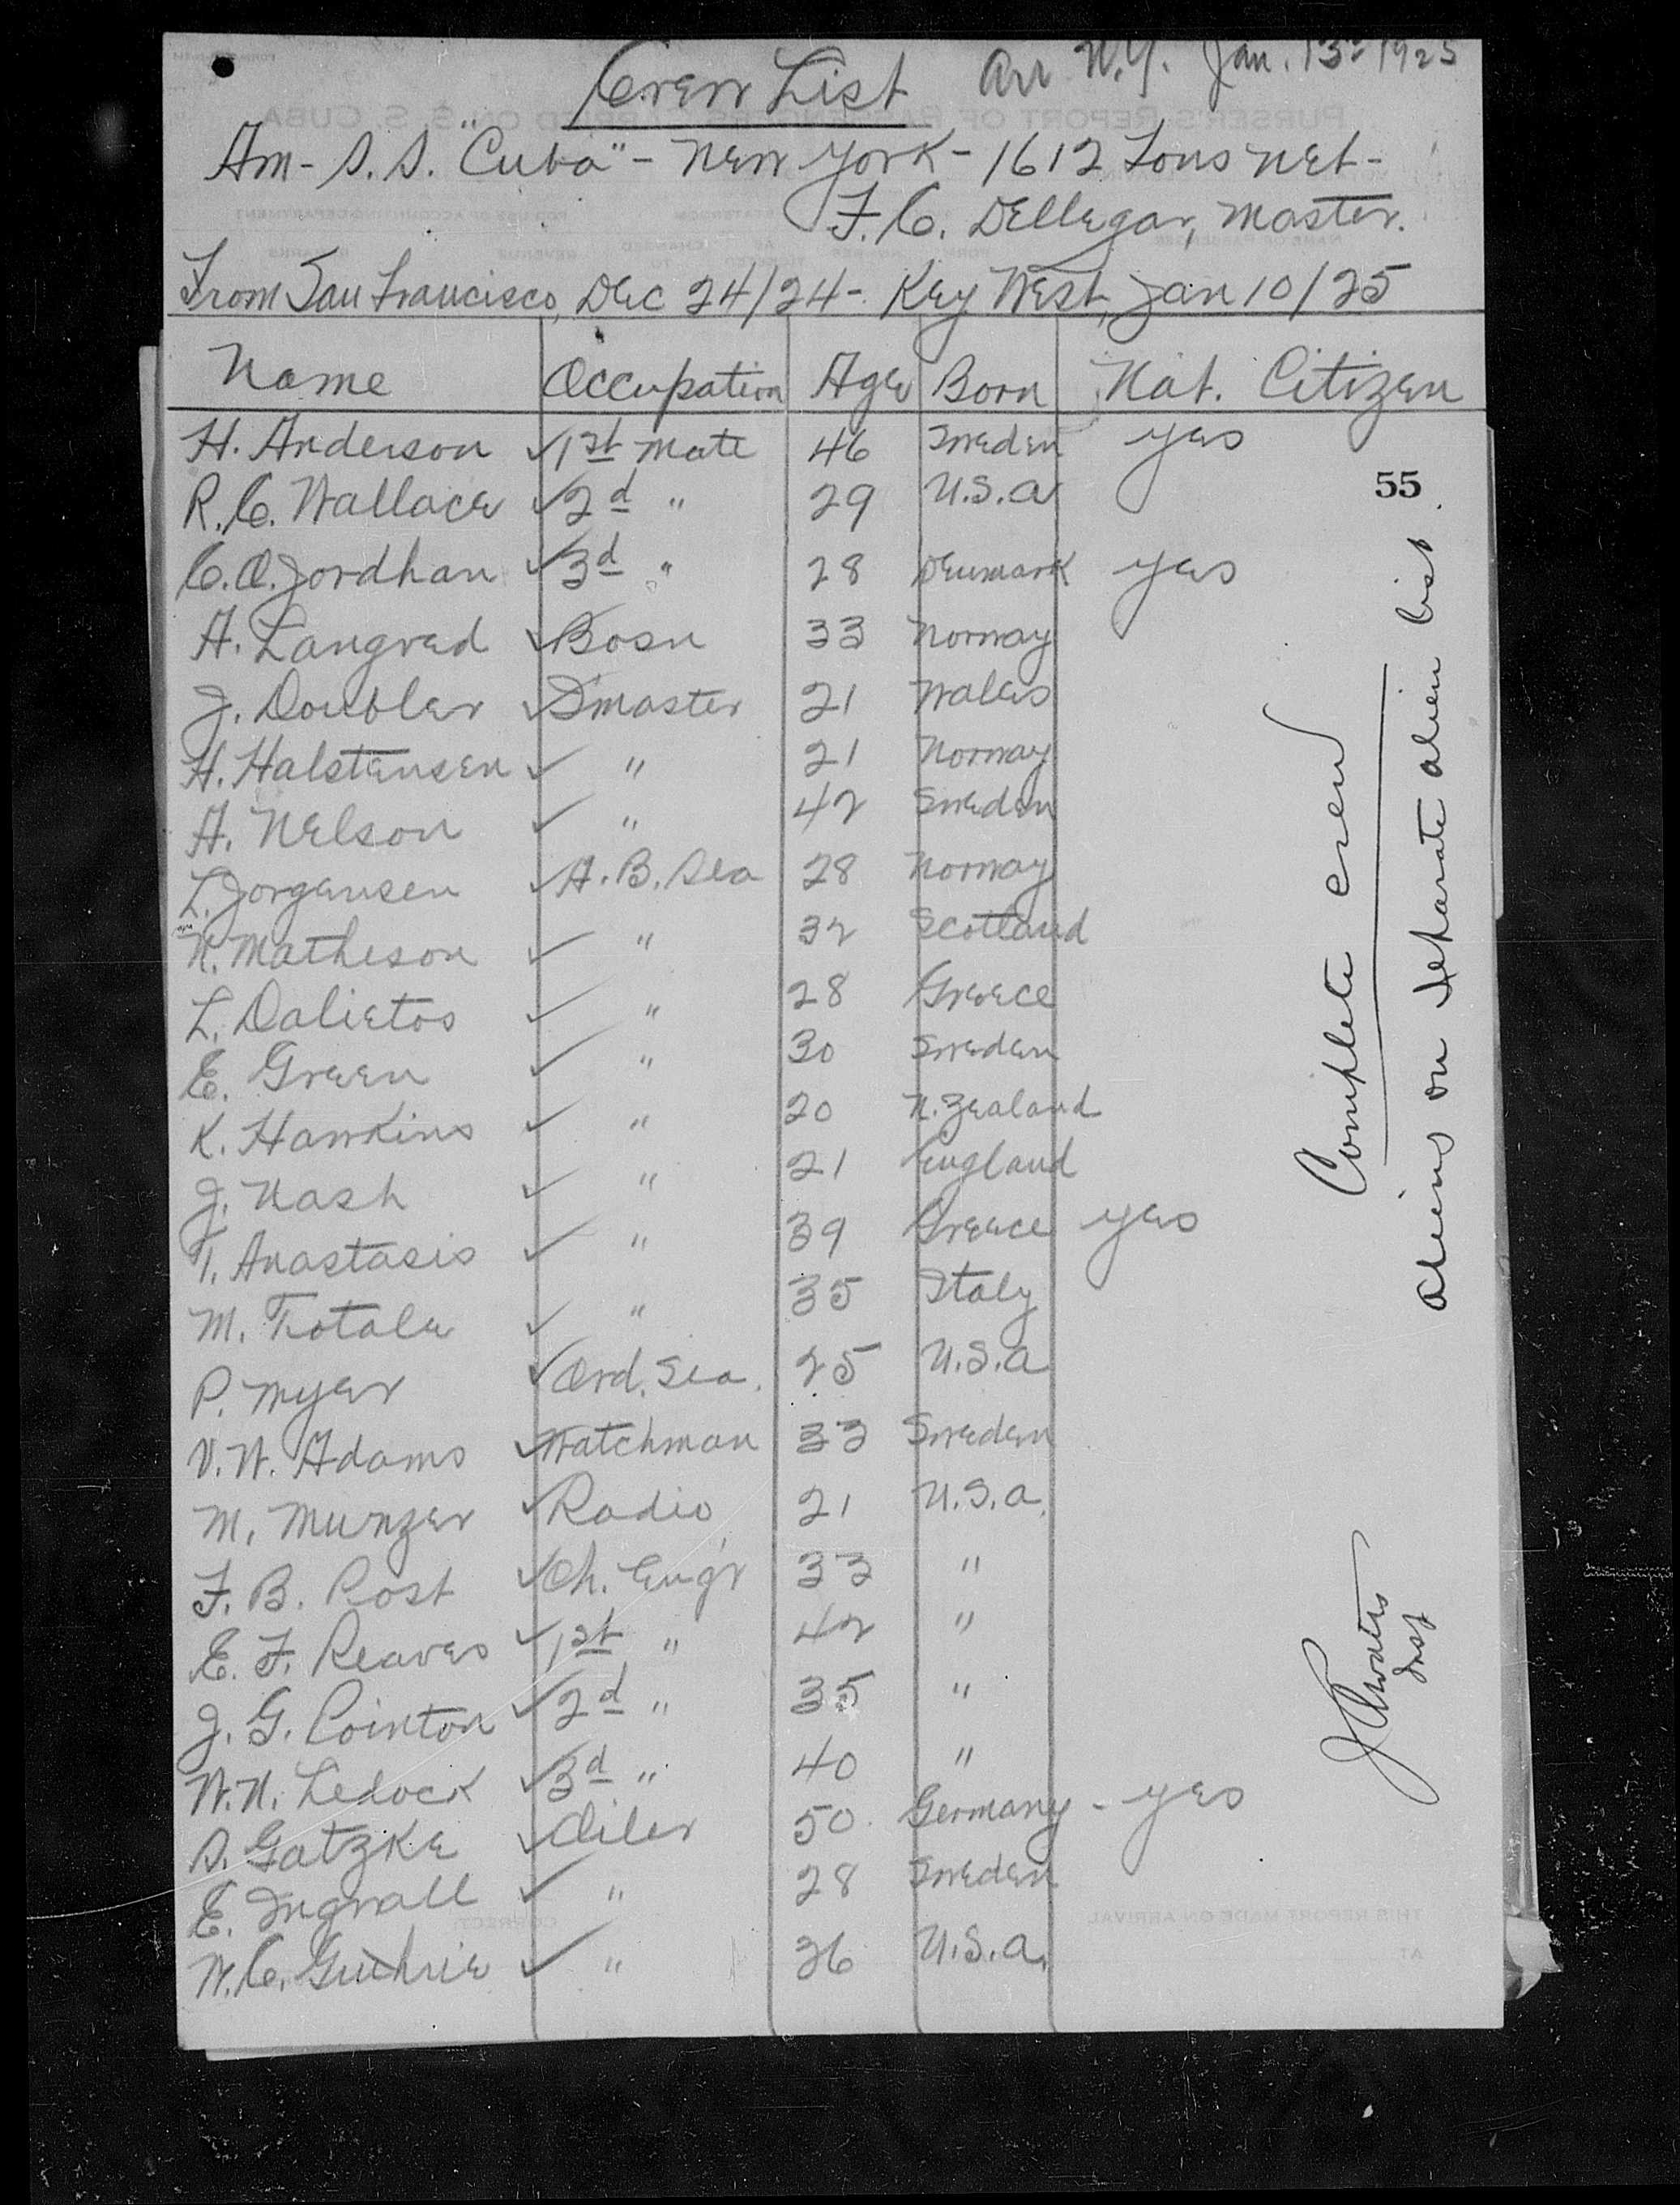 Crew List Arr N.Y. Jan. 13th 1925
Am - S.S. "Cuba" - New York - 1612 Tons net -
F.C. Dellegar, Master.
From San Francisco, Dec 24/24 - Key West, Jan 10/25
Name Occupation Age Born Nat. Citizen
H. Anderson ✓ 1st Mate 46 Sweden yes
R.C. Wallace ✓ 2d " 29 U.S.a
55
C.O. Jordhan ✓ 3d " 28 Denmark yes
A. Langved ✓ Bosn 33 Norway
J. Doubler ✓ D'master 21 Wales
H. Halstensen ✓ " 21 Norway
A. Nelson ✓ " 42 Sweden
L. Jorgensen ✓ A.B. Sea 28 Norway
N. Matheson ✓ " 32 Scotland
L. Dalietos ✓ " 28 Greece
E. Green ✓ " 30 Sweden
K. Hawkins ✓ " 20 N. Zealand
J. Nash ✓ " 21 England
T. Anastasis ✓ " 39 Greece yes
M. Totale ✓ " 35 Italy
P. Myer ✓ Ord. Sea. 25 U.S.a
V.W. Adams ✓ Watchman 33 Sweden
M. Munzer ✓ Radio 21 U.S.a.
F.B. Post ✓ Ch. Eng'r 33 "
E.F. Reaves ✓ 1st " 42 "
J.G. Pointon ✓ 2d " 35 "
W.N. Ledock ✓ 3d " 40 "
A. Gatzke ✓ Oiler 50 Germany - yes
E. Ingvall ✓ " 28 Sweden
W.C. Guthrie ✓ " 36 U.S.a.
Complete crew
Aliens on separate alien list.
Insp